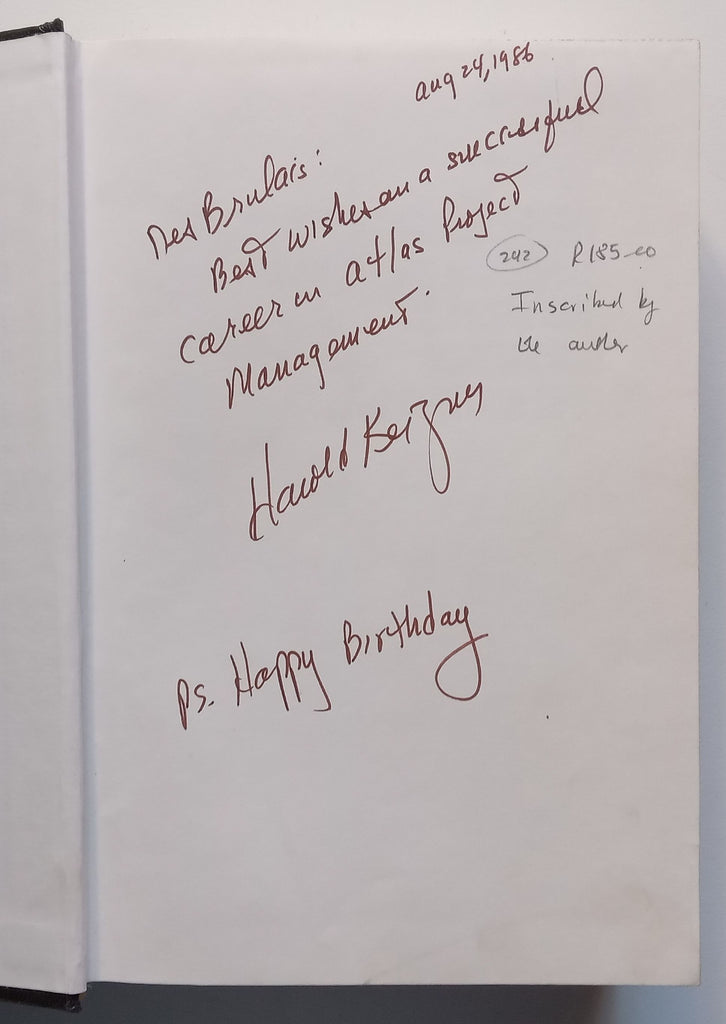 Aug 24, 1986
Des Brulais:
Best wishes on a successful
career in atlas Project
Management.
Harold Kerzner
PS. Happy Birthday
242 R185-00
Inscribed by
the author